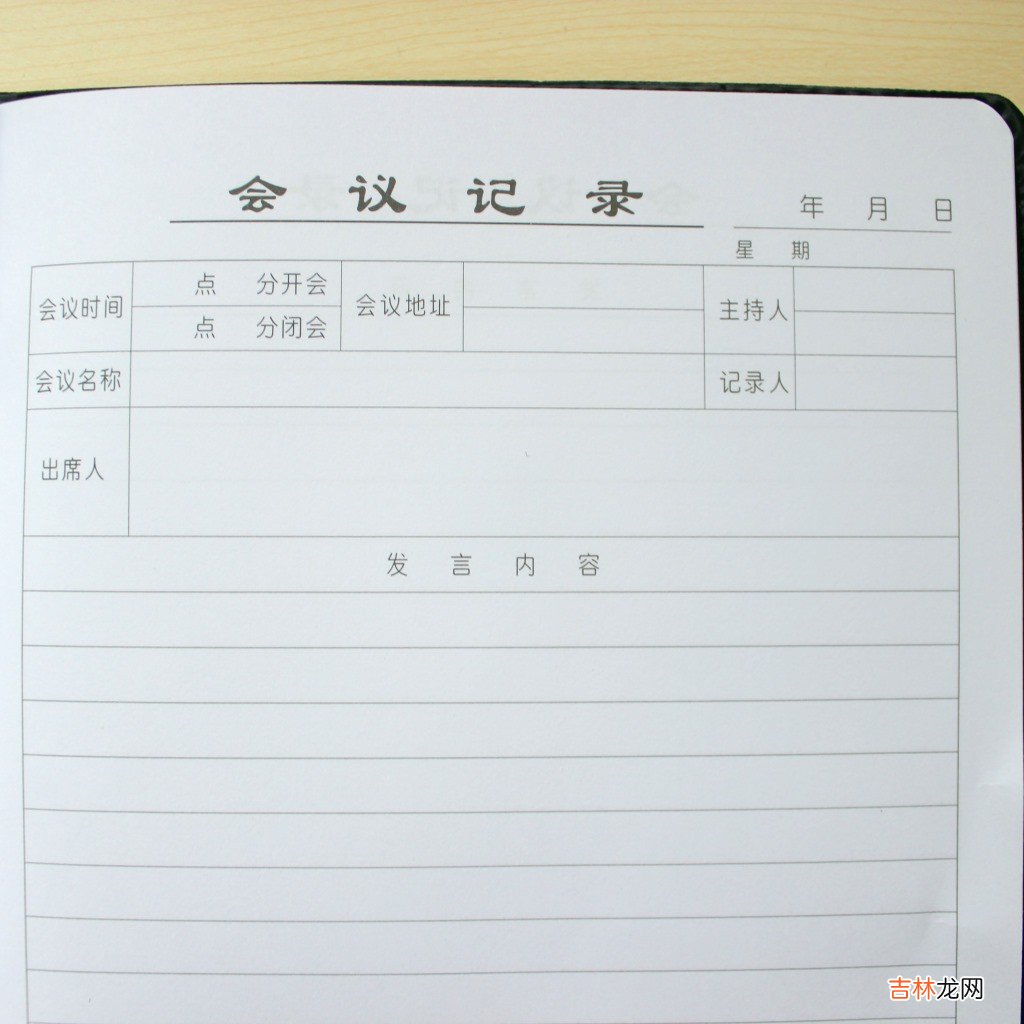 会议记录
年 月 日
星期
会议时间 点 分开会 会议地址 主持人
点 分闭会
会议名称 记录人
出席人
发言内容
吉林龙网